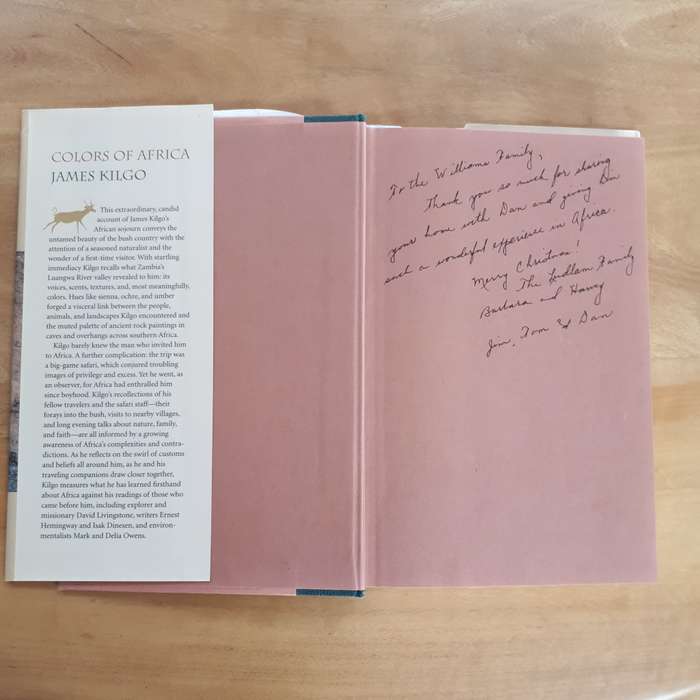 COLORS OF AFRICA
JAMES KILGO
This extraordinary, candid
account of James Kilgo's
African sojourn conveys the
untamed beauty of the bush country with the
attention of a seasoned naturalist and the
wonder of a first-time visitor. With startling
immediacy Kilgo recalls what Zambia's
Luangwa River valley revealed to him: its
voices, scents, textures, and, most meaningfully,
colors. Hues like sienna, ochre, and umber
forged a visceral link between the people,
animals, and landscapes Kilgo encountered and
the muted palette of ancient rock paintings in
caves and overhangs across southern Africa.
Kilgo barely knew the man who invited him
to Africa. A further complication: the trip was
a big-game safari, which conjured troubling
images of privilege and excess. Yet he went, as
an observer, for Africa had enthralled him
since boyhood. Kilgo's recollections of his
fellow travelers and the safari staff—their
forays into the bush, visits to nearby villages,
and long evening talks about nature, family,
and faith—are all informed by a growing
awareness of Africa's complexities and contra-
dictions. As he reflects on the swirl of customs
and beliefs all around him, as he and his
traveling companions draw closer together,
Kilgo measures what he has learned firsthand
about Africa against his readings of those who
came before him, including explorer and
missionary David Livingstone, writers Ernest
Hemingway and Isak Dinesen, and environ-
mentalists Mark and Delia Owens.
To the Williams Family,
Thank you so much for sharing
your home with Dan and giving Dan
such a wonderful experience in Africa.
Merry Christmas!
The Ludlam Family
Barbara and Harry
Jim, Tom & Dan